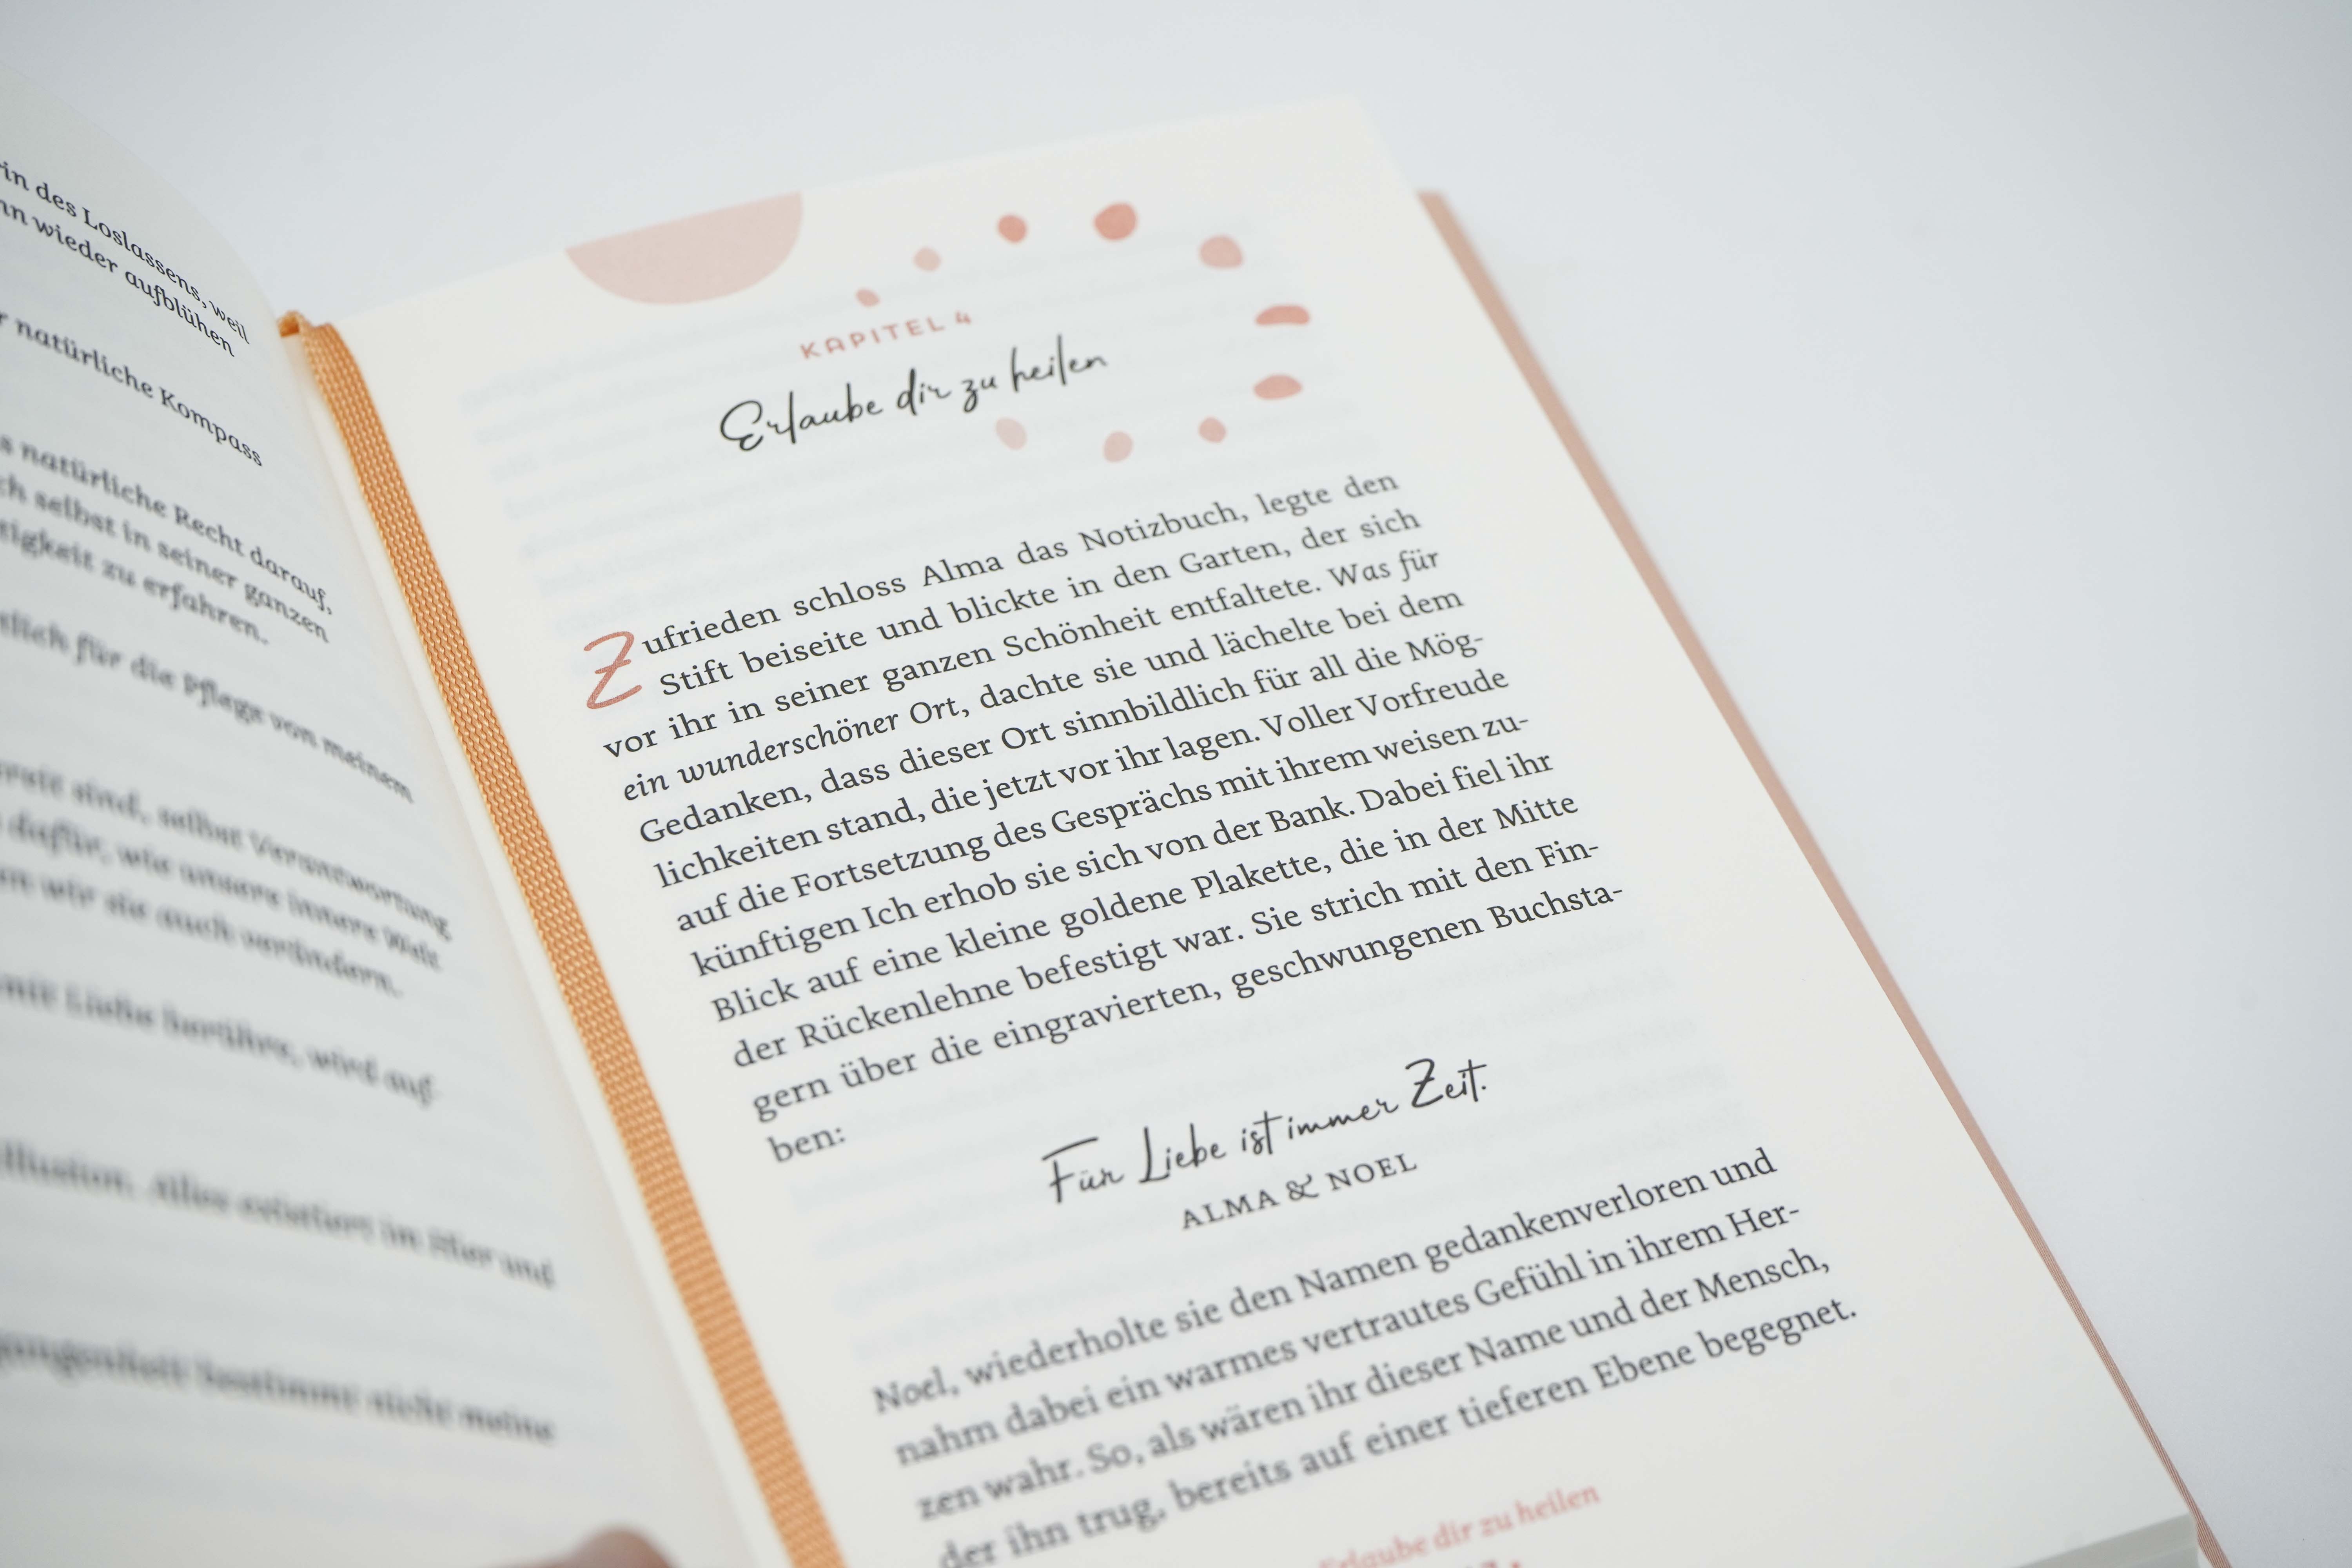 in des Loslassens, weil
nn wieder aufblühen
r natürliche Kompass
s natürliche Recht darauf,
ch selbst in seiner ganzen
tigkeit zu erfahren.
tlich für die Pflege von meinem
sind, selbst Verantwortung
dafür, wie unsere innere Welt
wir sie auch verändern.
mit Liebe berühre, wird auf-
Illusion. Alles existiert im Hier und
gangenheit bestimmt nicht meine
KAPITEL 4
Erlaube dir zu heilen
Zufrieden schloss Alma das Notizbuch, legte den
Stift beiseite und blickte in den Garten, der sich
vor ihr in seiner ganzen Schönheit entfaltete. Was für
ein wunderschöner Ort, dachte sie und lächelte bei dem
Gedanken, dass dieser Ort sinnbildlich für all die Mög-
lichkeiten stand, die jetzt vor ihr lagen. Voller Vorfreude
auf die Fortsetzung des Gesprächs mit ihrem weisen zu-
künftigen Ich erhob sie sich von der Bank. Dabei fiel ihr
Blick auf eine kleine goldene Plakette, die in der Mitte
der Rückenlehne befestigt war. Sie strich mit den Fin-
gern über die eingravierten, geschwungenen Buchsta-
ben:
Für Liebe ist immer Zeit.
ALMA & NOEL
Noel, wiederholte sie den Namen gedankenverloren und
nahm dabei ein warmes vertrautes Gefühl in ihrem Her-
zen wahr. So, als wären ihr dieser Name und der Mensch,
der ihn trug, bereits auf einer tieferen Ebene begegnet.
Erlaube dir zu heilen